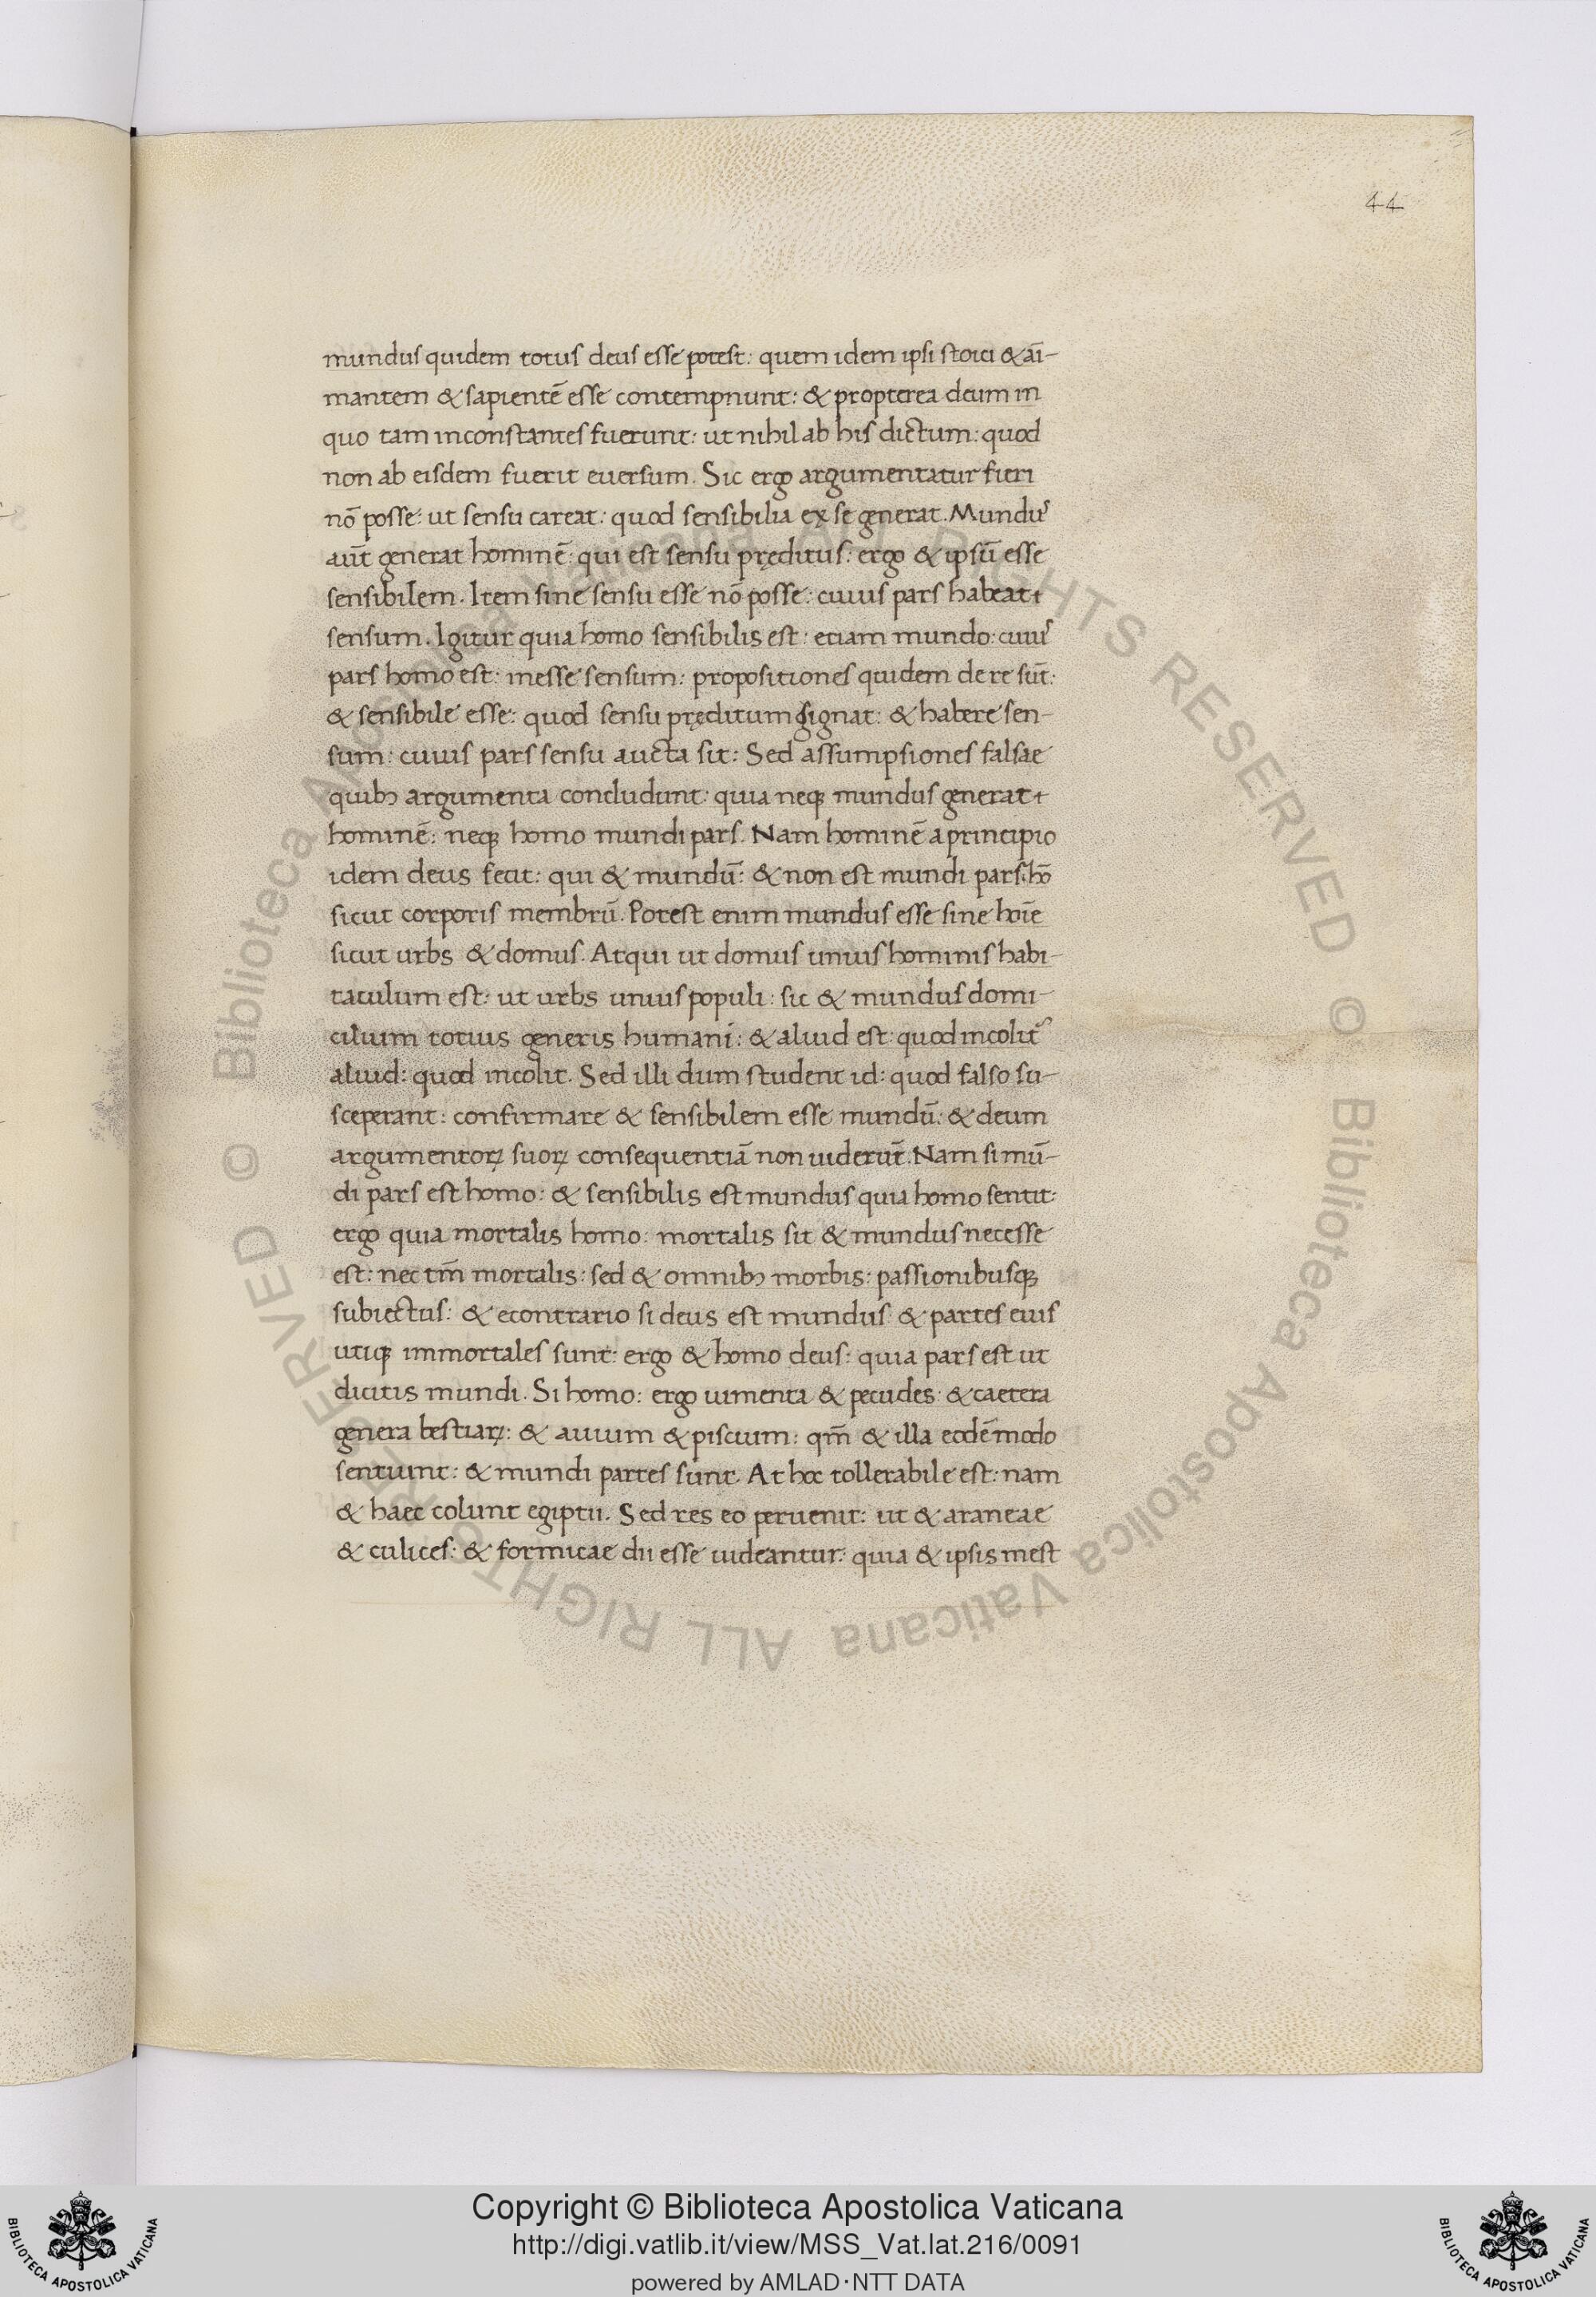 44
mundus quidem totus deus esse potest: quem idem ipsi stoici & aī-
mantem & sapientē esse contempnunt: & propterea deum in
quo tam inconstantes fuerunt: ut nihil ab his dictum: quod
non ab eisdem fuerit euersum. Sic ergo argumentatur fieri
nō posse: ut sensu careat: quod sensibilia ex se generat. Mundus
aūt generat hominē: qui est sensu pręditus: ergo & ipsū esse
sensibilem. Item sine sensu esse nō posse: cuius pars habeat
sensum. Igitur quia homo sensibilis est: etiam mundo: cuius
pars homo est: inesse sensum: propositiones quidem de re sūt:
& sensibile esse: quod sensu pręditum gignat: & habere sen-
sum: cuius pars sensu aucta sit: Sed assumpsiones falsae
quibꝫ argumenta concludunt: quia neqꝫ mundus generat
hominē: neqꝫ homo mundi pars. Nam hominē a principio
idem deus fecit: qui & mundū: & non est mundi pars: hō
sicut corporis membrū. Potest enim mundus esse sine hoīe
sicut urbs & domus. Atqui ut domus unius hominis habi-
taculum est: ut urbs unius populi: sic & mundus domi-
cilium totius generis humani: & aliud est: quod incolit᷑
aliud: quod incolit. Sed illi dum student id: quod falso su-
sceperant: confirmare & sensibilem esse mundū: & deum
argumentoꝝ suoꝝ consequentiā non uiderūt. Nam si mū-
di pars est homo: & sensibilis est mundus quia homo sentit:
ergo quia mortalis homo: mortalis sit & mundus necesse
est: nec tm̄ mortalis: sed & omnibꝫ morbis: passionibusqꝫ
subiectus: & econtrario si deus est mundus & partes eius
utiqꝫ immortales sunt: ergo & homo deus: quia pars est ut
dicitis mundi. Si homo: ergo uimenta & pecudes: & caetera
genera bestiaꝝ: & auium & piscium: qm̄ & illa eodē modo
sentiunt: & mundi partes sunt. At hoc tollerabile est: nam
& haec colunt egiptii. Sed res eo peruenit: ut & araneae
& culices: & formicae dii esse uideantur: quia & ipsis inest
© Biblioteca Apostolica Vaticana ALL RIGHTS RESERVED © Biblioteca Apostolica Vaticana ALL RIGHTS RESERVED
Copyright © Biblioteca Apostolica Vaticana
http://digi.vatlib.it/view/MSS_Vat.lat.216/0091
powered by AMLAD·NTT DATA
BIBLIOTECA APOSTOLICA VATICANA
BIBLIOTECA APOSTOLICA VATICANA